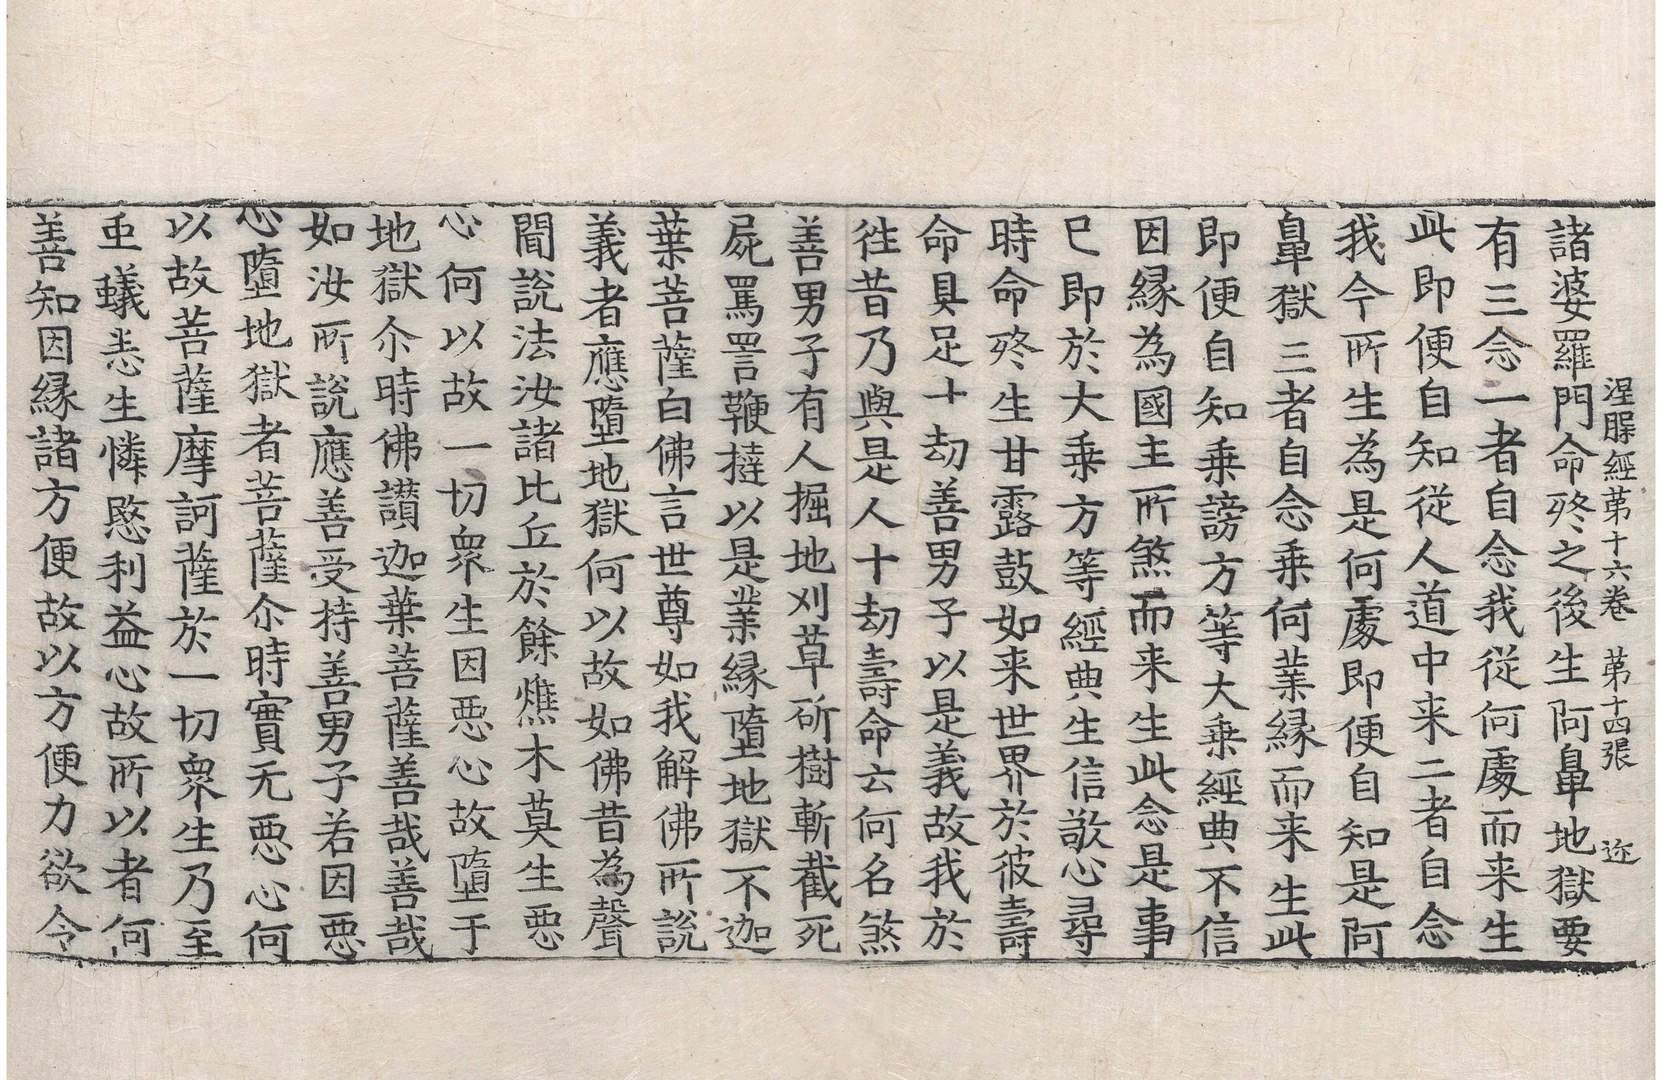 涅槃經第十六卷 第十四張 迩
諸婆羅門命終之後生阿鼻地獄要
有三念一者自念我從何處而来生
此即便自知從人道中来二者自念
我今所生為是何處即便自知是阿
鼻獄三者自念乗何業縁而来生此
即便自知乗謗方等大乗經典不信
因縁為國主所煞而来生此念是事
已即於大乗方等經典生信敬心尋
時命終生甘露鼓如来世界於彼壽
命具足十劫善男子以是義故我於
徃昔乃與是人十劫壽命云何名煞
善男子有人掘地刈草斫樹斬截死
屍罵詈鞭撻以是業縁墮地獄不迦
葉菩薩白佛言世尊如我解佛所說
義者應墮地獄何以故如佛昔為聲
聞說法汝諸比丘於餘燋木莫生惡
心何以故一切衆生因惡心故墮于
地獄尒時佛讃迦葉菩薩善哉善哉
如汝所說應善受持善男子若因惡
心墮地獄者菩薩尒時實无惡心何
以故菩薩摩訶薩於一切衆生乃至
䖝蟻悉生憐愍利益心故所以者何
善知因縁諸方便故以方便力欲令